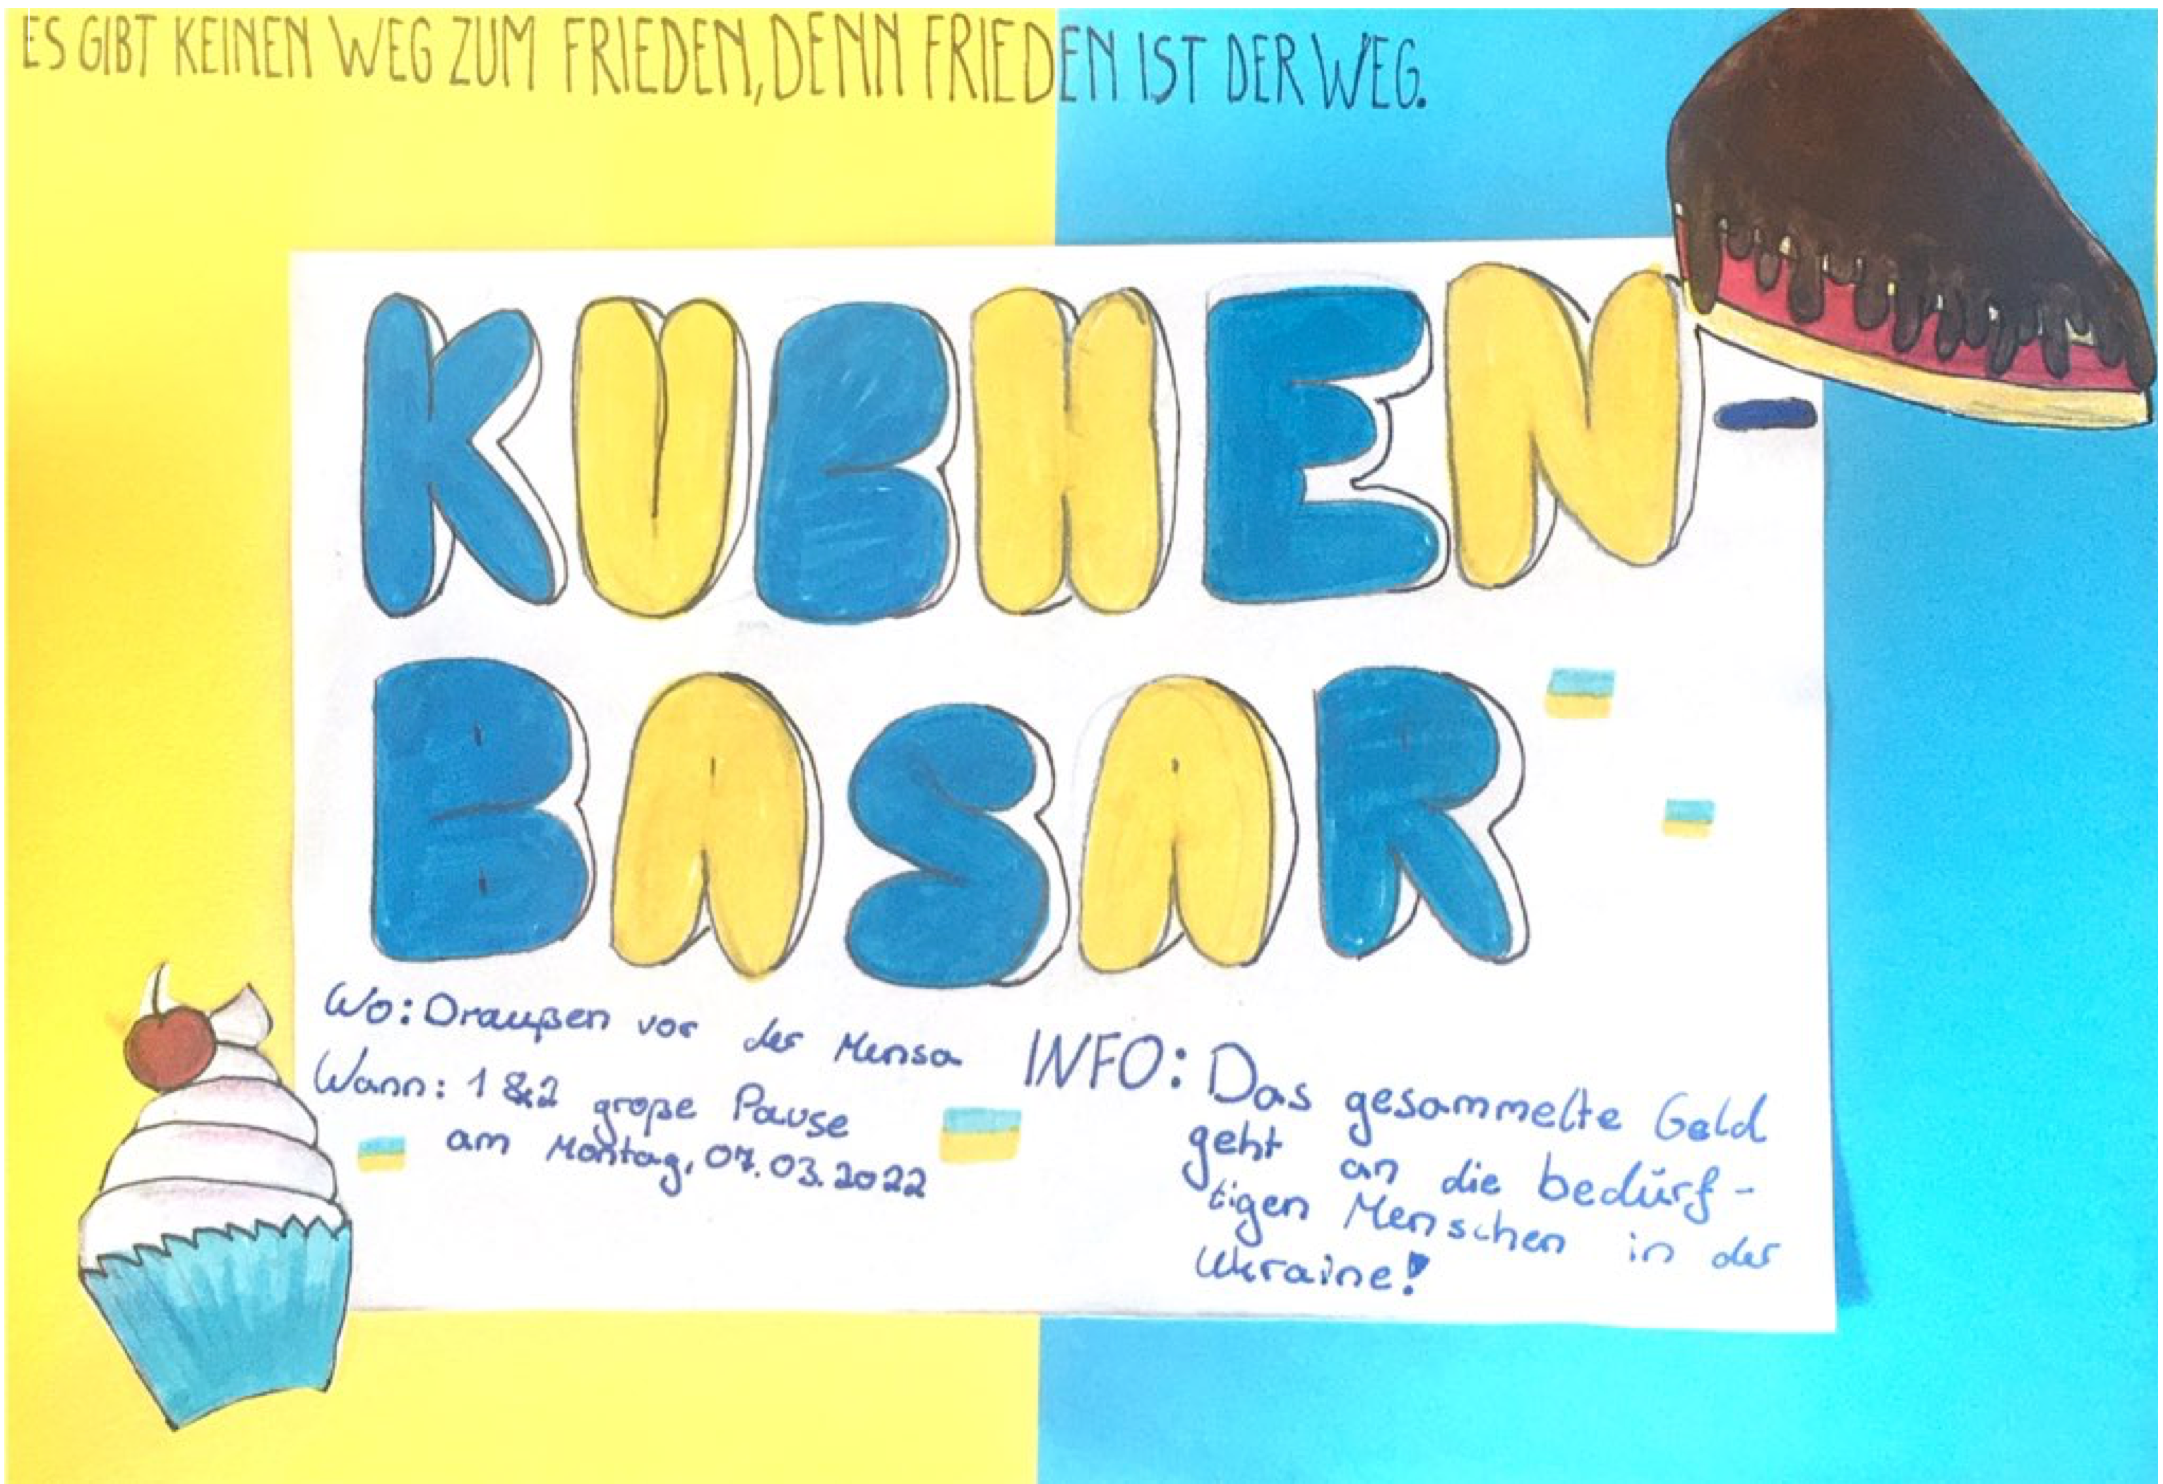 ES GIBT KEINEN WEG ZUM FRIEDEN, DENN FRIEDEN IST DER WEG.
KUCHEN-
BASAR
Wo: Draußen vor der Mensa
Wann: 1 & 2 große Pause
am Montag, 07.03.2022
INFO: Das gesammelte Geld
geht an die bedürf-
tigen Menschen in der
Ukraine!